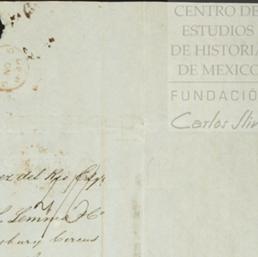 CENTRO DE
ESTUDIOS
DE HISTORIA
DE MEXICO
FUNDACIÓ
Carlos Slim
ez del Rio Esqr
Lemme & Co
sbury Circus